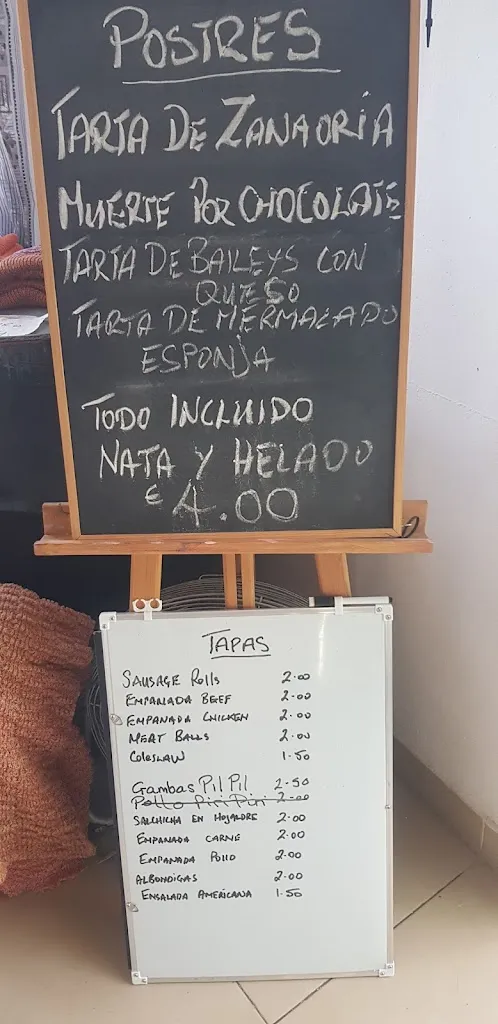 POSTRES
TARTA DE ZANAORIA
MUERTE POR CHOCOLATE
TARTA DE BAILEYS CON
QUESO
TARTA DE MERMALADO
ESPONJA
TODO INCLUIDO
NATA Y HELADO
€4.00
TAPAS
SAUSAGE Rolls 2.00
EMPANADA BEEF 2.00
EMPANADA CHICKEN 2.00
MEAT BALLS 2.00
COLESLAW 1.50
Gambas Pil Pil 2.50
Pollo Piri Piri 2.00
SALCHICHA EN HOJALDRE 2.00
EMPANADA CARNE 2.00
EMPANADA POLLO 2.00
ALBONDIGAS 2.00
ENSALADA AMERICANA 1.50